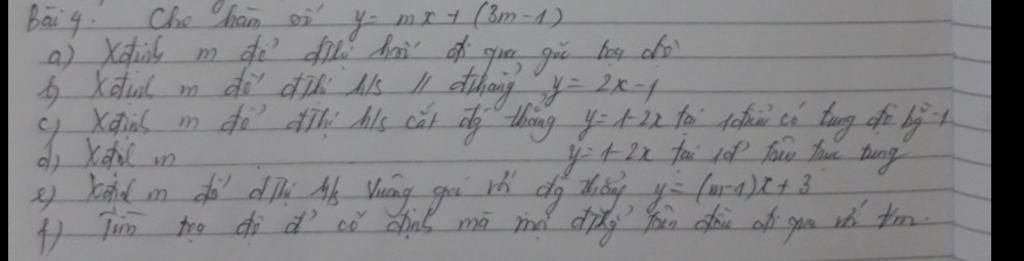 Bài 4. Cho hàm số y = mx + (3m-1)
a) Xđịnh m để đthị hsố đi qua gốc tọa độ
b) Xđịnh m để đthị h/s // đthẳng y = 2x-1
c) Xđịnh m để đthị h/s cắt đg thẳng y = 1-2x tại 1 điểm có tung độ bg -1
d) Xđịnh m y = 1-2x tại 1đ' trên trục tung
e) Xđịnh m để đthị h/s vuông góc với đg thẳng y = (m-1)x + 3
f) Tìm tọa độ đ' cố định mà mọi đthg trên đều đi qua với